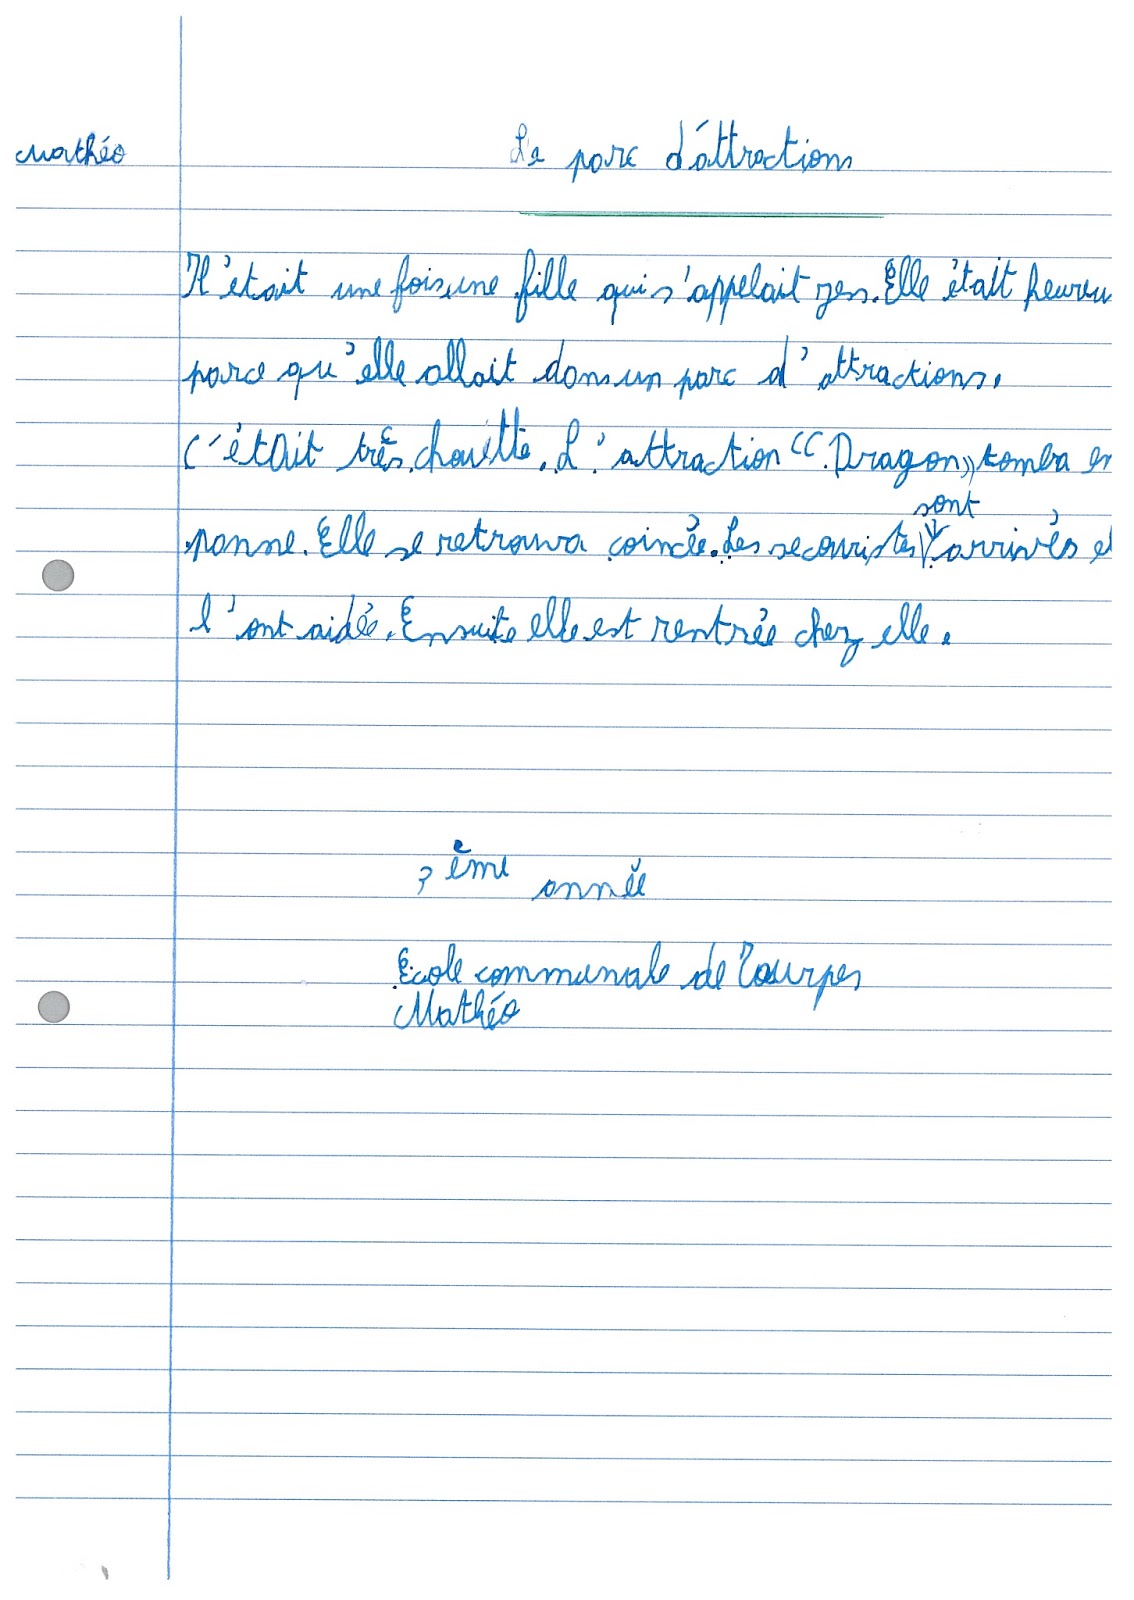 Mathéo
Le parc d'attractions
Il était une fois une fille qui s'appelait zen. Elle était heureu
parce qu'elle allait dans un parc d'attractions.
C'était très chouette. L'attraction «Dragon» tomba en
panne. Elle se retrouva coincée. Les secouristes sont arrivés et
l'ont aidée. Ensuite elle est rentrée chez elle.
3ème année
Ecole communale de Tourpes
Mathéo